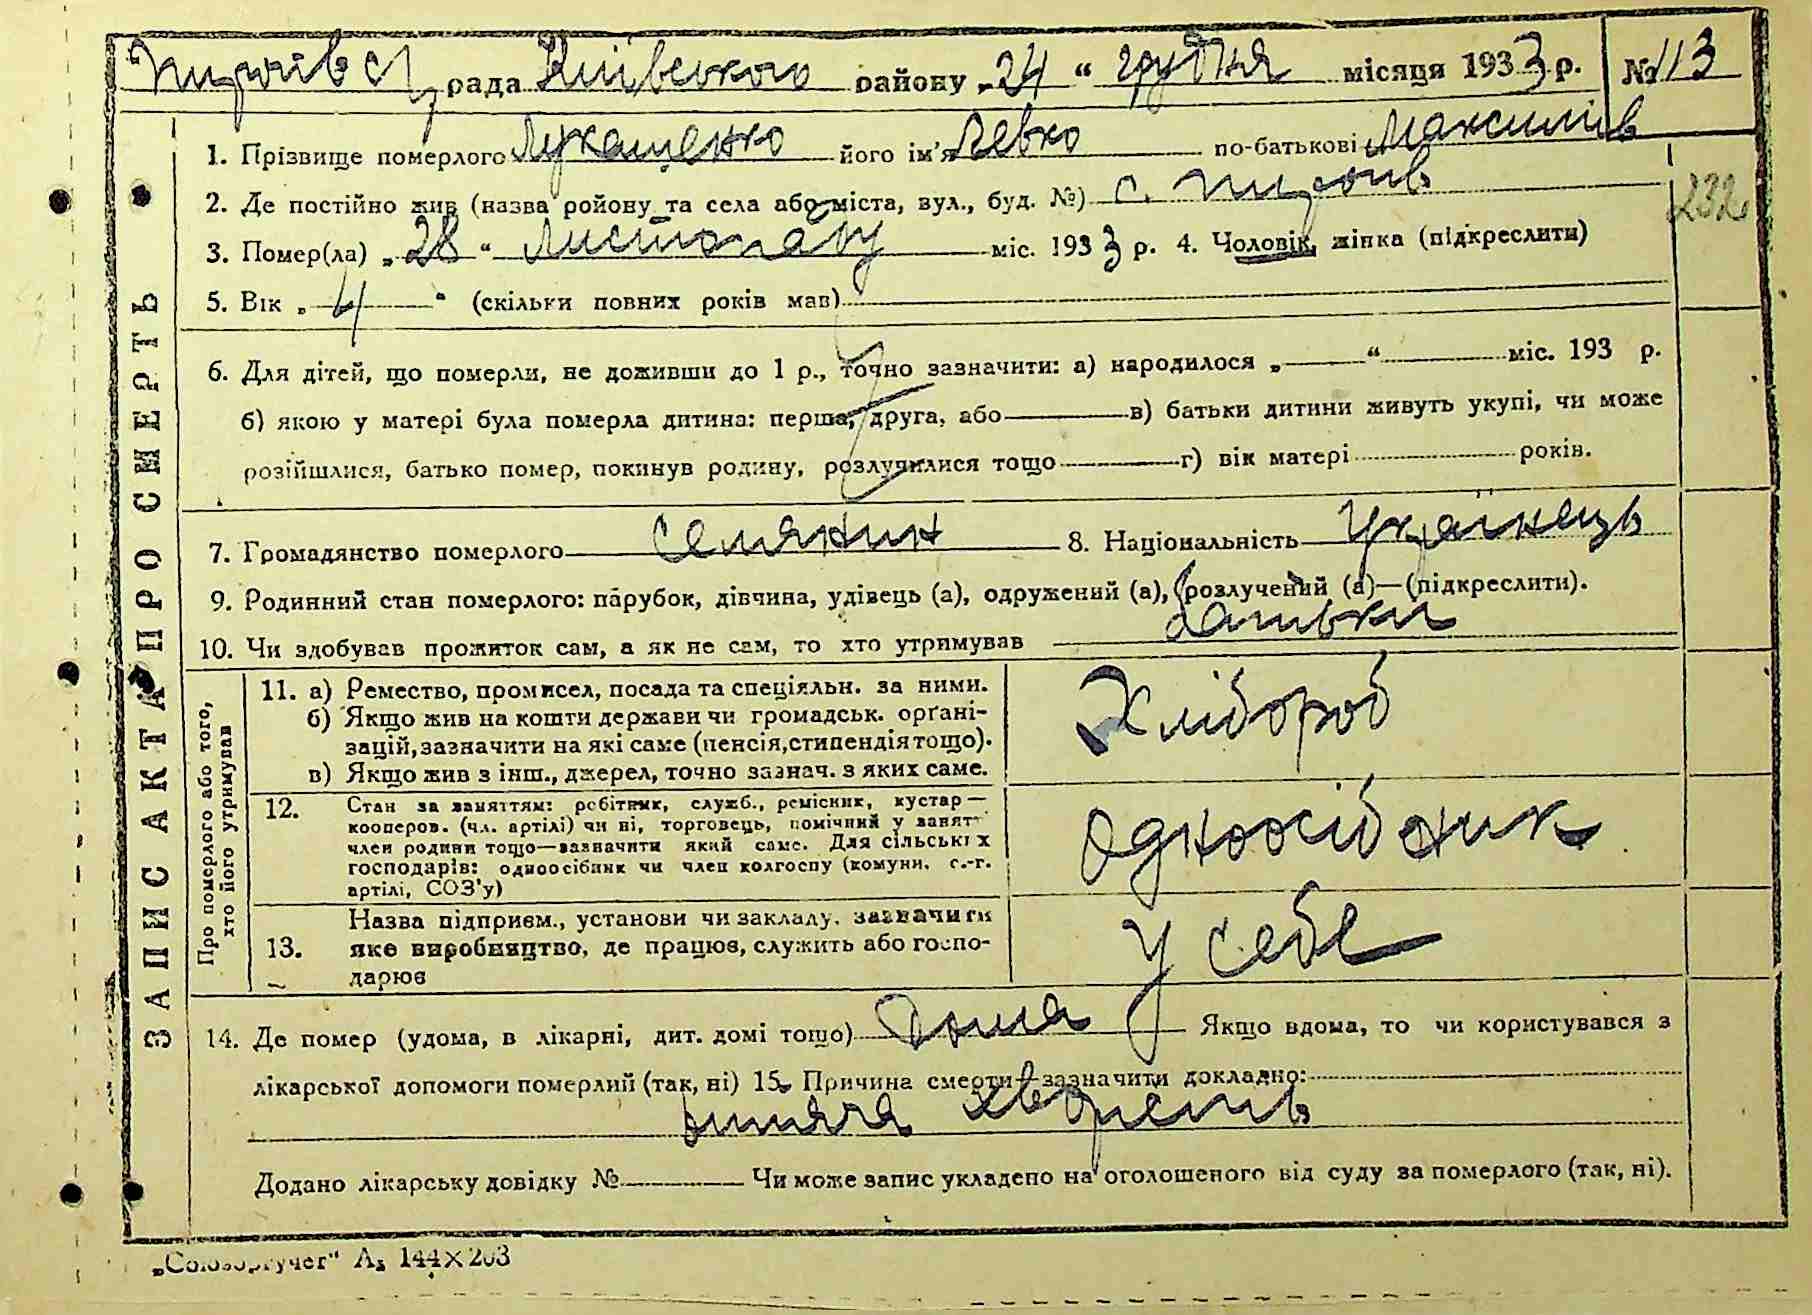 Пирогів с/ рада Київського району „24“ грудня місяця 1933 р. №113
1. Прізвище померлого Лукашенко його ім'я Левко по-батькові Максимів
2. Де постійно жив (назва ройону та села або міста, вул., буд. №) с. Пирогів
232
3. Помер(ла) „28“ листопаду міс. 1933 р. 4. Чоловік, жінка (підкреслити)
5. Вік „4“ (скільки повних років мав)
6. Для дітей, що померли, не доживши до 1 р., точно зазначити: а) народилося „ “ міс. 193 р.
б) якою у матері була померла дитина: перша, друга, або в) батьки дитини живуть укупі, чи може
розійшлися, батько помер, покинув родину, розлучилися тощо г) вік матері років.
7. Громадянство померлого селянин 8. Національність Українець
9. Родинний стан померлого: парубок, дівчина, удівець (а), одружений (а), розлучений (а)—(підкреслити).
10. Чи здобував прожиток сам, а як не сам, то хто утримував батьки
ЗАПИС АКТА ПРО СМЕРТЬ
Про померлого або того,
хто його утримував
11. а) Ремество, промисел, посада та спеціяльн. за ними.
б) Якщо жив на кошти держави чи громадськ. орґані-
зацій, зазначити на які саме (пенсія, стипендія тощо).
в) Якщо жив з інш., джерел, точно зазнач. з яких саме.
Хлібороб
12. Стан за заняттям: робітник, служб., ремісник, кустар—
кооперов. (чл. артілі) чи ні, торговець, помічний у занятт
член родини тощо—зазначити який саме. Для сільських
господарів: одноосібник чи член колгоспу (комуни, с.-г.
артілі, СОЗ'у)
одноосібник
13. Назва підприєм., установи чи закладу, зазначити
яке виробництво, де працює, служить або госпо-
дарює
у себе
14. Де помер (удома, в лікарні, дит. домі тощо) дома Якщо вдома, то чи користувався з
лікарської допомоги померлий (так, ні) 15. Причина смерти—зазначити докладно:
дитяча хворість
Додано лікарську довідку № Чи може запис укладено на оголошеного від суду за померлого (так, ні).
„Союзоргучет“ А5 144×203